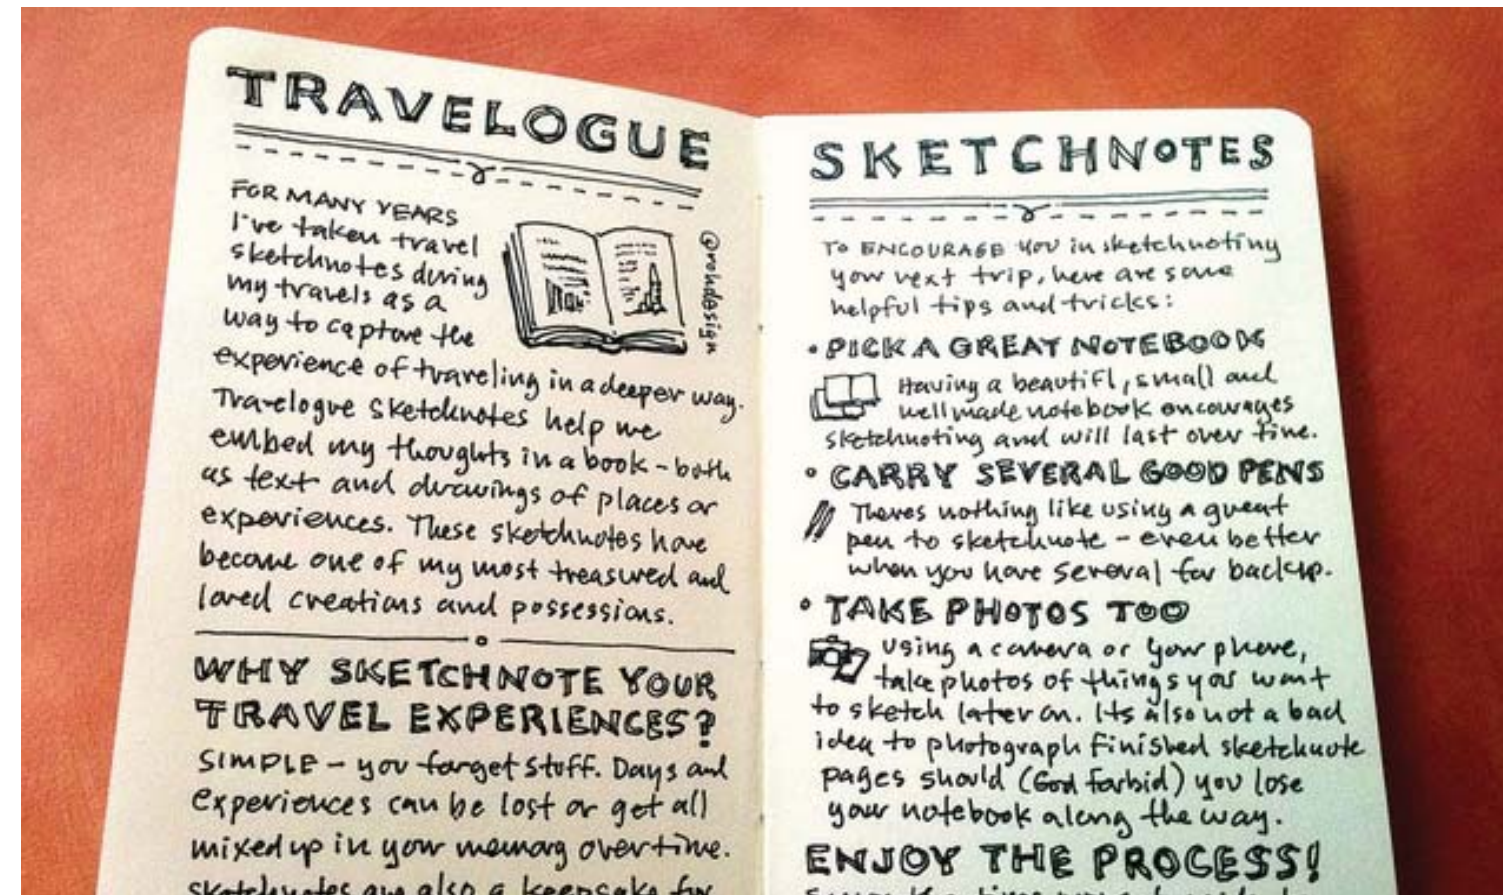 TRAVELOGUE
FOR MANY YEARS
I've taken travel
sketchnotes during
my travels as a
way to capture the
experience of traveling in a deeper way.
Travelogue sketchnotes help me
embed my thoughts in a book - both
as text and drawings of places or
experiences. These sketchnotes have
become one of my most treasured and
loved creations and possessions.
@rohdesign
WHY SKETCHNOTE YOUR
TRAVEL EXPERIENCES?
SIMPLE - you forget stuff. Days and
experiences can be lost or get all
mixed up in your memory over time.
sketchnotes are also a keepsake for
SKETCHNOTES
TO ENCOURAGE you in sketchnoting
your next trip, here are some
helpful tips and tricks:
• PICK A GREAT NOTEBOOK
Having a beautifl, small and
well made notebook encourages
sketchnoting and will last over time.
• CARRY SEVERAL GOOD PENS
Theres nothing like using a great
pen to sketchnote - even better
when you have several for backup.
• TAKE PHOTOS TOO
Using a camera or your phone,
take photos of things you want
to sketch later on. Its also not a bad
idea to photograph finished sketchnote
pages should (God forbid) you lose
your notebook along the way.
ENJOY THE PROCESS!